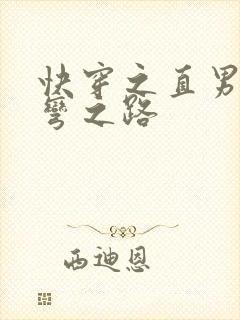 快穿之直男
弯之路
西迪恩